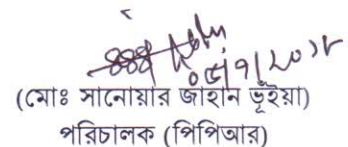 ০৫/৭/২০১৮
(মোঃ সানোয়ার জাহান ভূঁইয়া)
পরিচালক (পিপিআর)